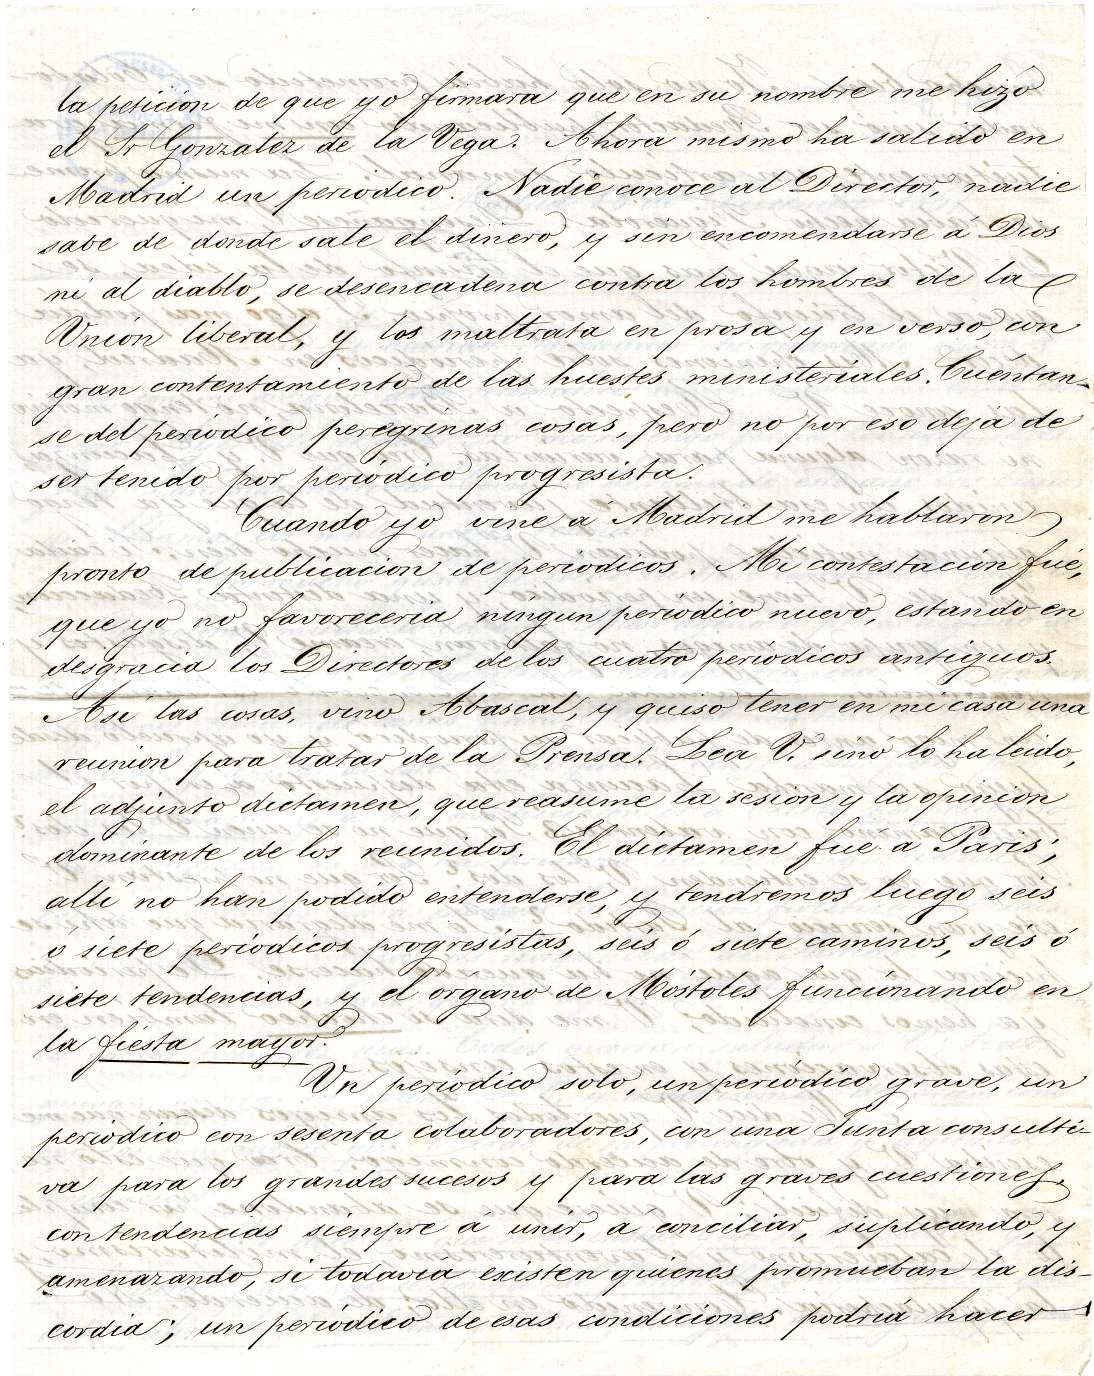 la peticion de que yo firmara que en su nombre me hizo
el Sr Gonzalez de la Vega. Ahora mismo ha salido en
Madrid un periodico. Nadie conoce al Director, nadie
sabe de donde sale el dinero, y sin encomendarse á Dios
ni al diablo, se desencadena contra los hombres de la
Union liberal, y los maltrata en prosa y en verso, con
gran contentamiento de las huestes ministeriales. Cuéntan-
se del periodico peregrinas cosas, pero no por eso deja de
ser tenido por periódico progresista.
Cuando yo vine á Madrid me hablaron
pronto de publicacion de periodicos. Mi contestación fué,
que yo no favoreceria ningun periodico nuevo, estando en
desgracia los Directores de los cuatro periodicos antiguos.
Asi las cosas, vino Abascal, y quiso tener en mi casa una
reunion para tratar de la Prensa. Lea V. sinó lo ha leido,
el adjunto dictamen, que reasume la sesion y la opinion
dominante de los reunidos. El dictamen fué á Paris;
allí no han podido entenderse, y tendremos luego seis
ó siete periodicos progresistas, seis ó siete caminos, seis ó
siete tendencias, y el órgano de Móstoles funcionando en
la fiesta mayor.
Un periodico solo, un periódico grave, un
periodico con sesenta colaboradores, con una Junta consulti-
va para los grandes sucesos y para las graves cuestiones,
con tendencias siempre á unir, á conciliar, suplicando, y
amenazando, si todavia existen quienes promueban la dis-
cordia; un periódico de esas condiciones podriá hacer